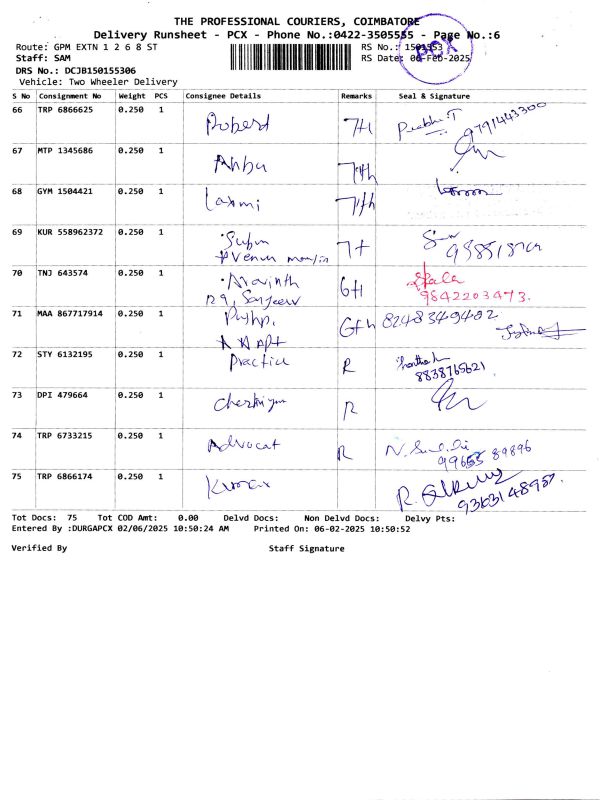 THE PROFESSIONAL COURIERS, COIMBATORE
Delivery Runsheet - PCX - Phone No.:0422-3505555 - Page No.:6
Route: GPM EXTN 1 2 6 8 ST RS No.: 1501553
Staff: SAM RS Date: 06-Feb-2025
PCX
DRS No.: DCJB150155306
Vehicle: Two Wheeler Delivery
S No Consignment No Weight PCS Consignee Details Remarks Seal & Signature
66 TRP 6866625 0.250 1 Robert 7th Prabhu.T 9791443300
67 MTP 1345686 0.250 1 Anbu 7th
68 GYM 1504421 0.250 1 Laxmi 7th
69 KUR 558962372 0.250 1
Avenue 7th
70 TNJ 643574 0.250 1 Aravinth 6th Kala
129, Sanjeev 9842203473.
71 MAA 867717914 0.250 1 6th 8248349402
Appt
72 STY 6132195 0.250 1 Practice R
8838765621
73 DPI 479664 0.250 1 R
74 TRP 6733215 0.250 1 Advocat R
99655 89896
75 TRP 6866174 0.250 1 Kumar R.
Tot Docs: 75 Tot COD Amt: 0.00 Delvd Docs: Non Delvd Docs: Delvy Pts:
Entered By :DURGAPCX 02/06/2025 10:50:24 AM Printed On: 06-02-2025 10:50:52
Verified By Staff Signature